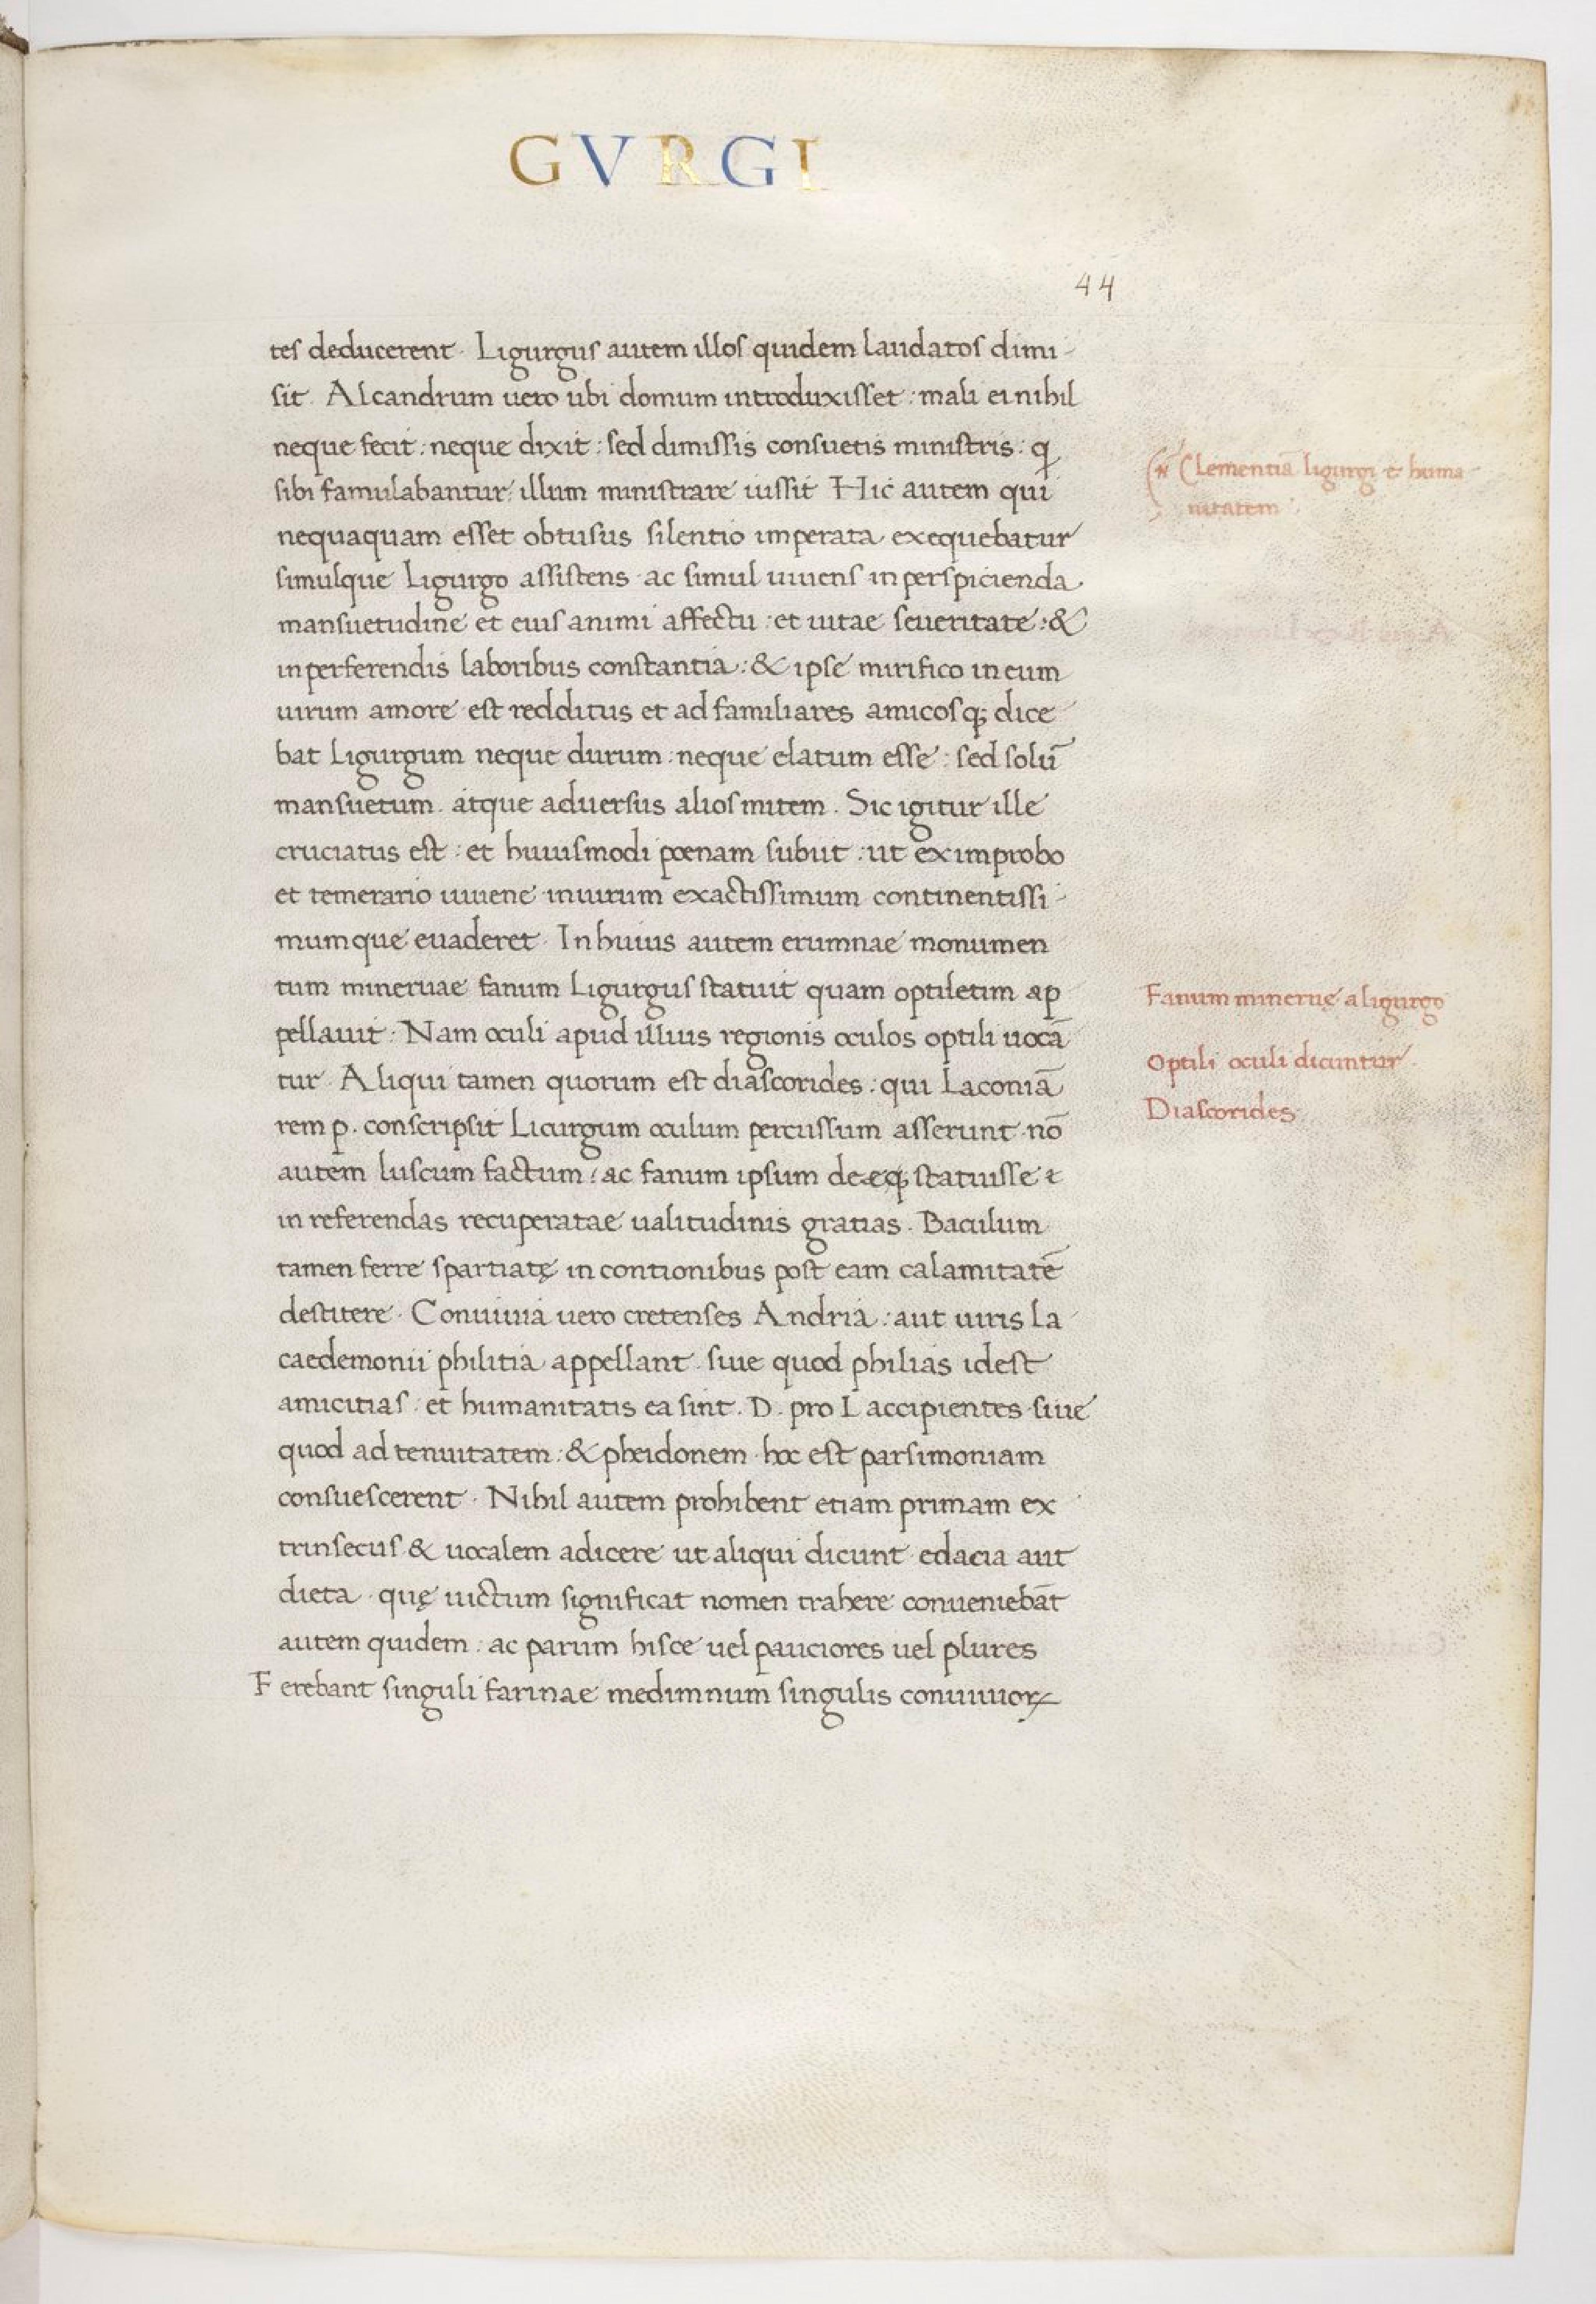 GVRGI
44
tes deducerent. Ligurgus autem illos quidem laudatos dimi-
sit. Alcandrum uero ubi domum introduxisset: mali ei nihil
neque fecit: neque dixit: sed dimissis consuetis ministris: q
sibi famulabantur: illum ministrare iussit Hic autem qui
nequaquam esset obtusus silentio imperata exequebatur
simulque Ligurgo assistens ac simul uiuens in perspicienda
mansuetudine et eius animi affectu: et uitae seueritate: &
in perferendis laboribus constantia: & ipse mirifico in eum
uirum amore est redditus et ad familiares amicosq; dice
bat Ligurgum neque durum: neque elatum esse: sed solū
mansuetum. atque aduersus alios mitem. Sic igitur ille
cruciatus est: et huiusmodi poenam subiit: ut ex improbo
et temerario iuuene in uirum exactissimum continentissi-
mumque euaderet. In huius autem erumnae monumen
tum mineruae fanum Ligurgus statuit quam optiletim ap
pellauit. Nam oculi apud illius regionis oculos optili uocā
tur. Aliqui tamen quorum est diascorides: qui Laconiā
rem p. conscripsit Licurgum oculum percussum asserunt nō
autem luscum factum: ac fanum ipsum deaeq; statuisse
in referendas recuperatae ualitudinis gratias. Baculum
tamen ferre spartiatę in contionibus post eam calamitatē
destitere. Conuiuia uero cretenses Andria: aut uiris La
caedemonii philitia appellant. siue quod philias idest
amicitias: et humanitatis ea sint. D. pro L accipientes siue
quod ad tenuitatem: & pheidonem hoc est parsimoniam
consuescerent. Nihil autem prohibent etiam primam ex
trinsecus & uocalem adicere ut aliqui dicunt edacia aut
dieta. quę uictum significat nomen trahere conueniebāt
autem quidem: ac parum hisce uel pauciores uel plures
Ferebant singuli farinae medimnum singulis conuiuioꝝ
Clementiā ligurgi & huma-
nitatem
Fanum mineruę a ligurgo
Optili oculi dicuntur.
Diascorides